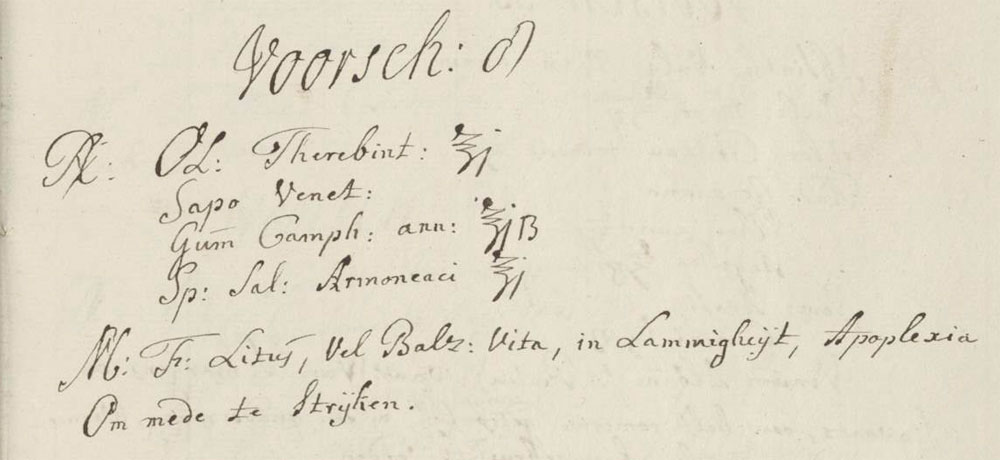 Voorsch: 8
Rx: Ol: Therebint: ℥j
Sapo Venet:
Gum̄ Camph: ann: ℥jß
Sp: Sal: Armoneaci ℥j
M: F: Litus̄, Vel Balz: Vita, in Lammigheijt, Apoplexia
Om mede te Strijken.